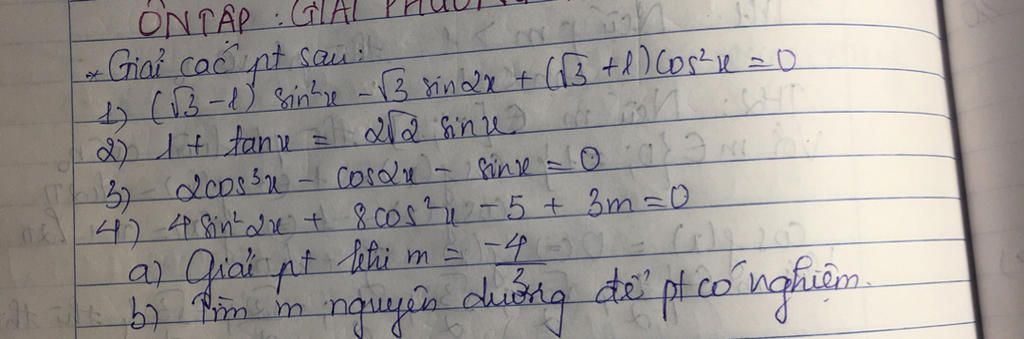 ÔN TẬP : GIẢI PHƯƠNG
* Giải các pt sau:
1) (√3 -1) sin²x - √3 sin2x + (√3 +1) cos²x = 0
2) 1 + tanx = 2√2 sinx
3) 2cos³x - cos2x - sinx = 0
4) 4 sin²2x + 8cos²x - 5 + 3m = 0
a) Giải pt khi m = -4/3
b) Tìm m nguyên dương để pt có nghiệm.